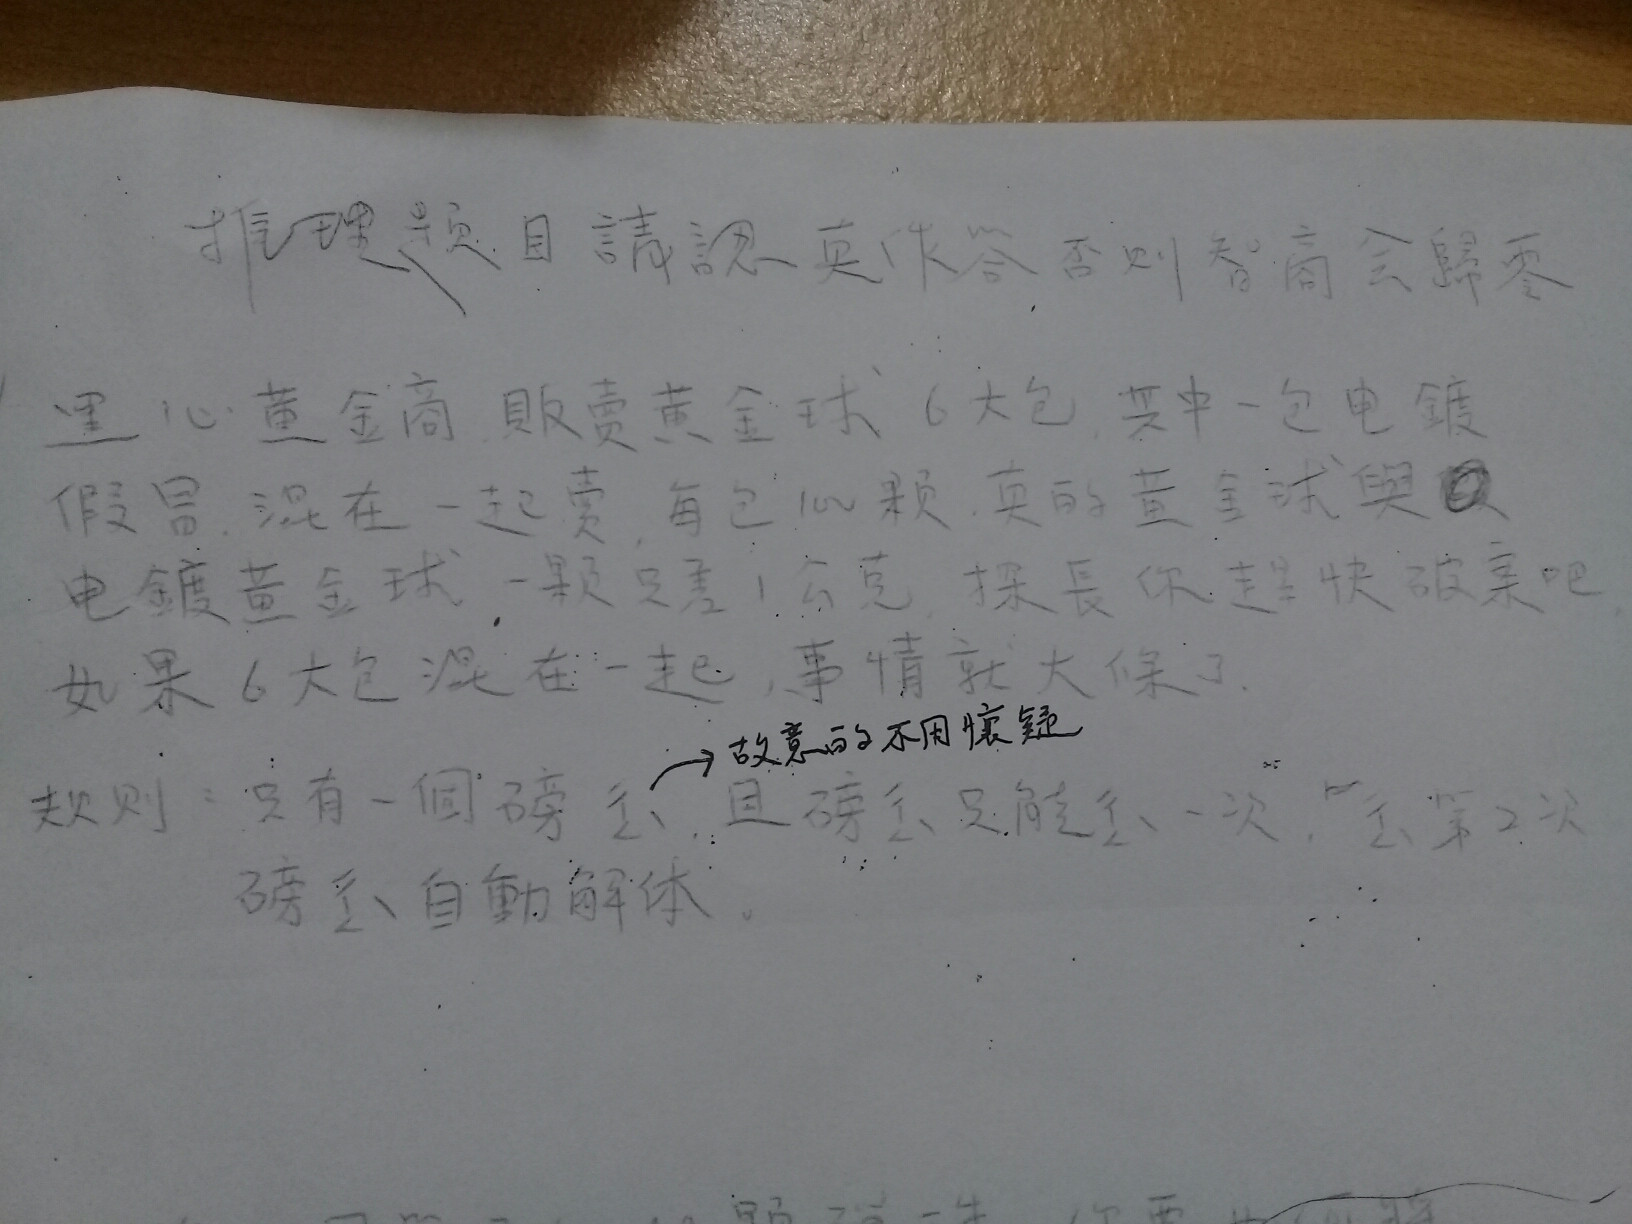 推理題目請認真作答否則智商会歸零
黑心黃金商,販賣黃金球6大包,其中一包电鍍
假冒,混在一起賣,每包100顆,真的黃金球與
电鍍黃金球,一顆只差1公克,探長你趕快破案吧,
如果6大包混在一起,事情就大條了.
故意的不用懷疑
規则:只有一個磅秤,且磅秤只能秤一次,秤第2次
磅秤自動解体。